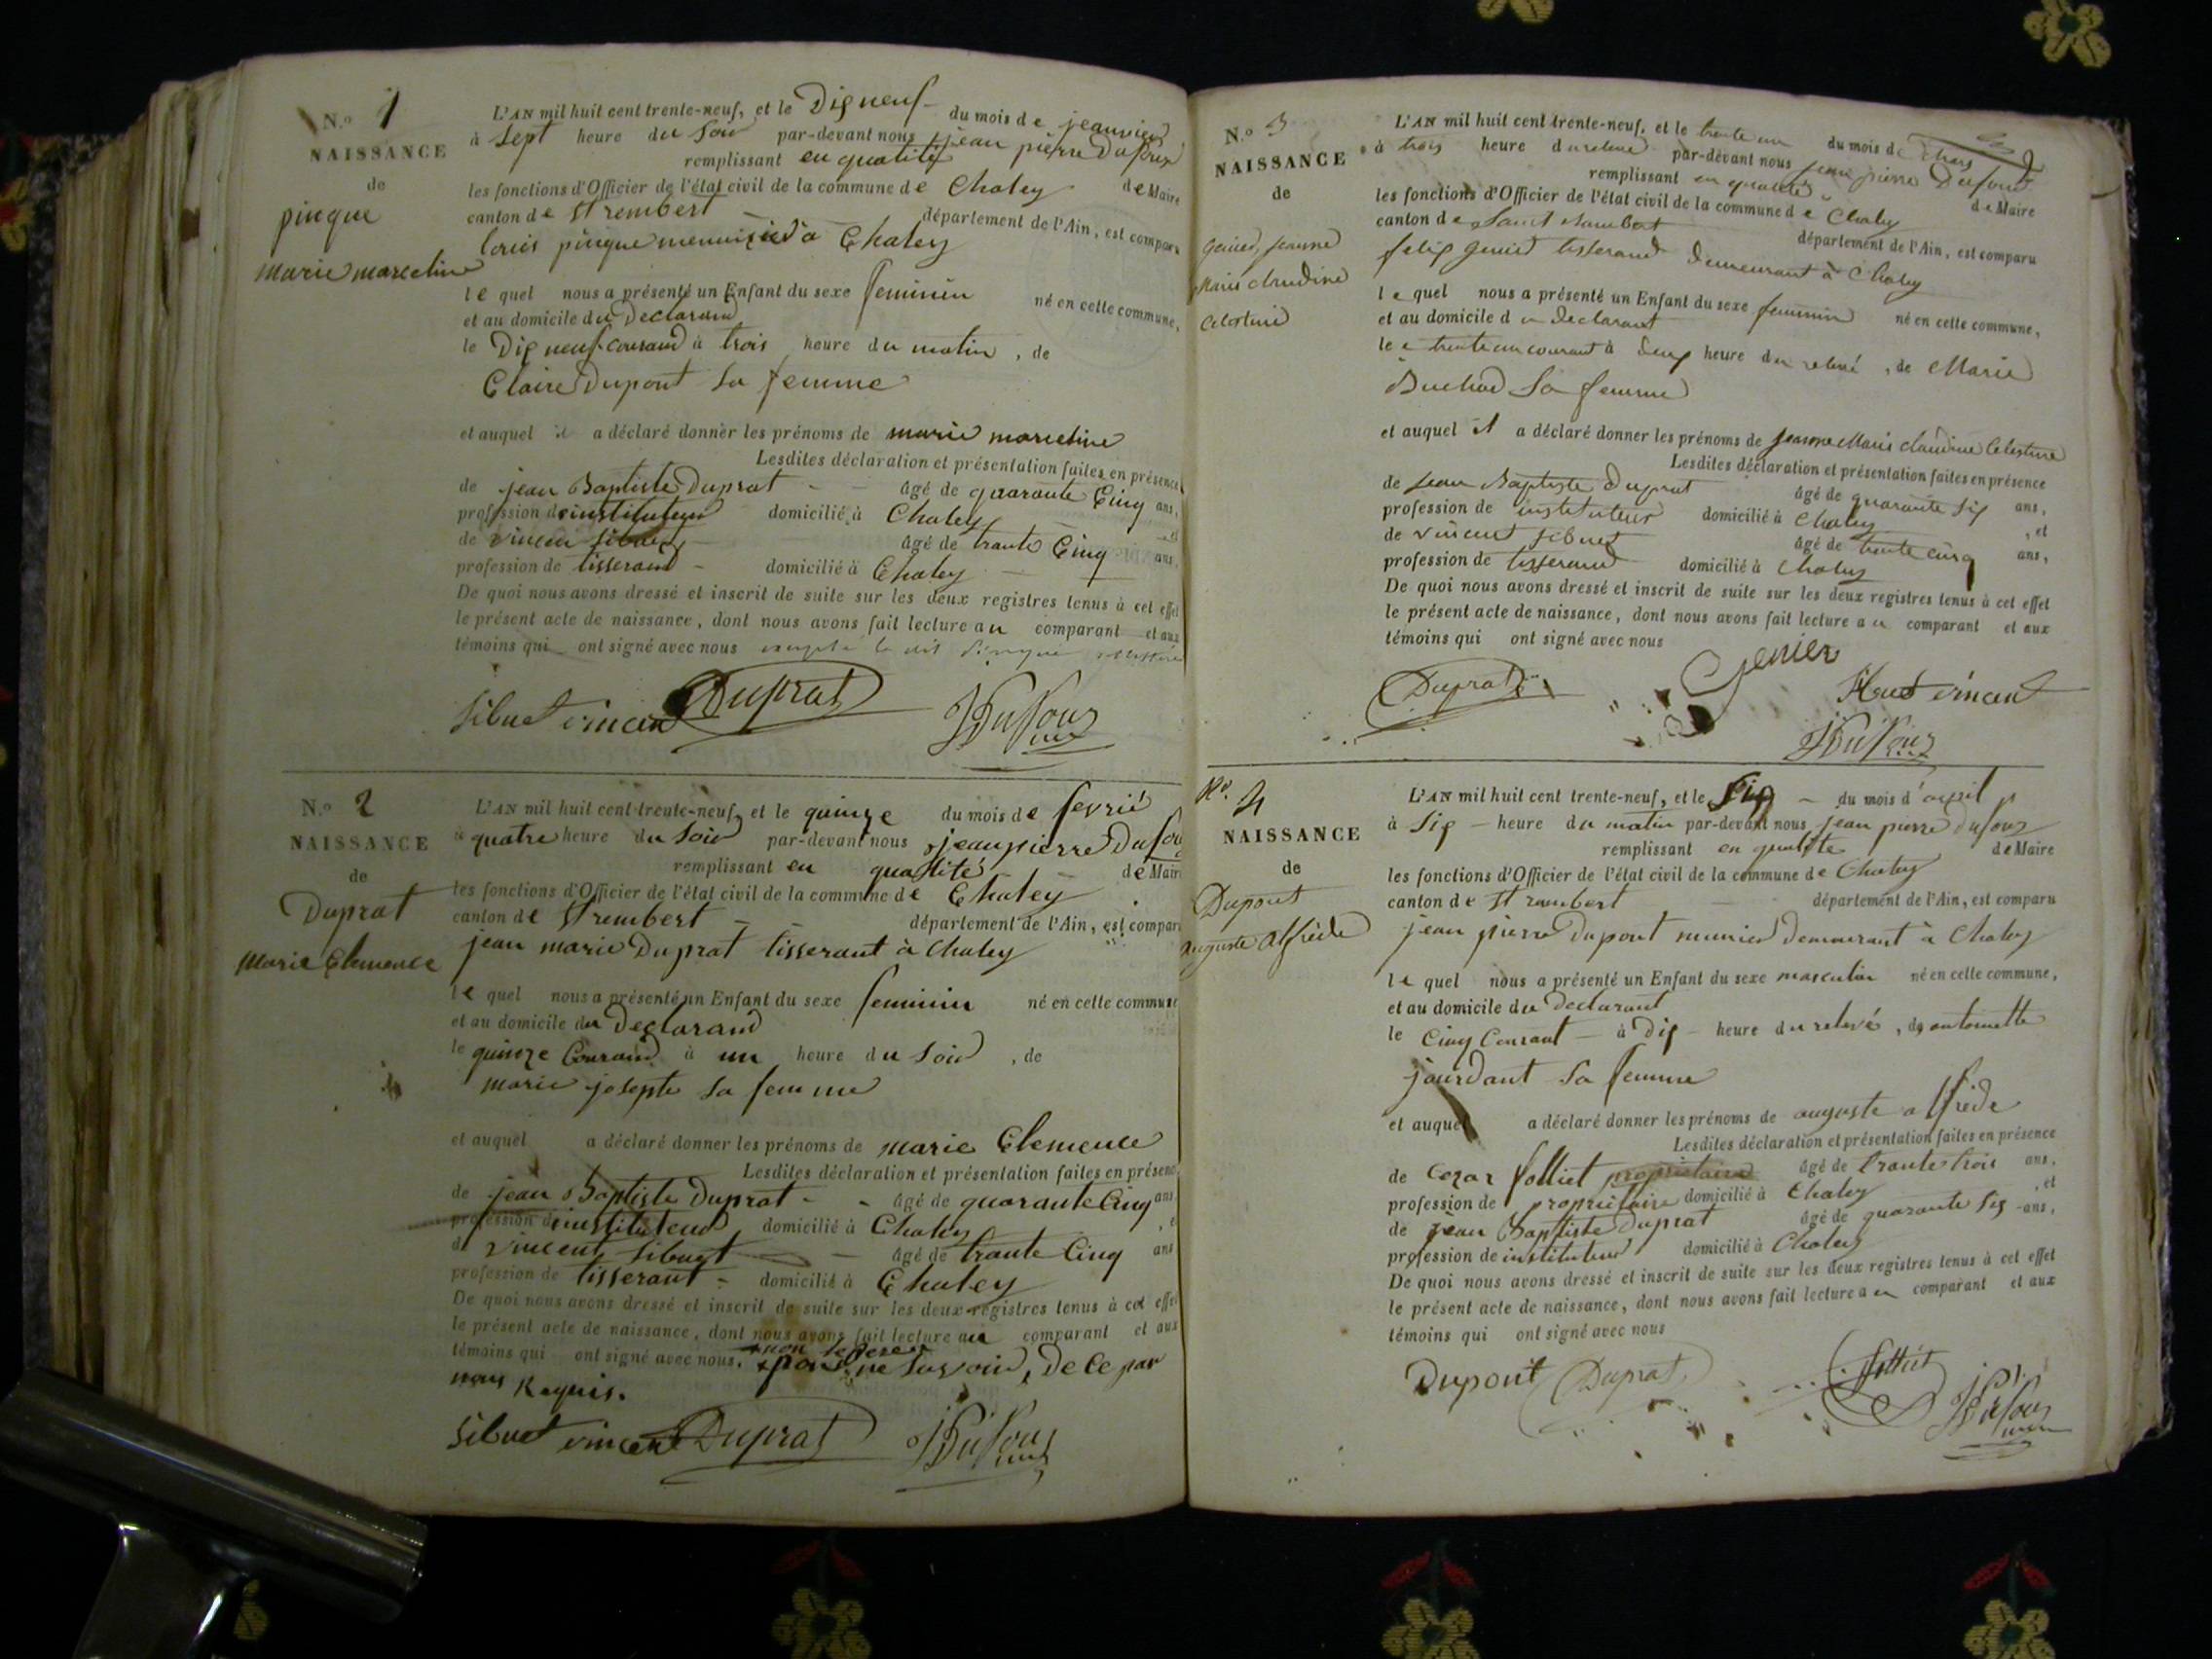 N.o 1
NAISSANCE
de
pingue
marie marceline
L'AN mil huit cent trente-neuf, et le Dix neuf du mois de jeanvier
à sept heure du soir par-devant nous jean pierre Dufour
remplissant en qualité de Maire
les fonctions d'Officier de l'état civil de la commune de Chaley
canton de St rembert département de l'Ain, est comparu
louis pingue menuisier à Chaley
le quel nous a présenté un Enfant du sexe feminin né en cette commune,
et au domicile du Declarand
le Dix neuf courand à trois heure du matin, de
Claire Dupont sa femme
et auquel il a déclaré donner les prénoms de marie marceline
Lesdites déclaration et présentation faites en présence
de jean Baptiste Duprat âgé de quarante Cinq ans,
profession de instituteur domicilié à Chaley, et
de vincent sibuet âgé de trante Cinq ans,
profession de tisserand domicilié à Chaley
De quoi nous avons dressé et inscrit de suite sur les deux registres tenus à cet effet
le présent acte de naissance, dont nous avons fait lecture au comparant et aux
témoins qui ont signé avec nous
Sibuet vincent Duprat JP Dufour
N.o 2
NAISSANCE
de
Duprat
Marie Clemence
L'AN mil huit cent trente-neuf, et le quinze du mois de fevrié
à quatre heure du soir par-devant nous jean pierre Dufour
remplissant en qualité de Maire
les fonctions d'Officier de l'état civil de la commune de Chaley
canton de St rembert département de l'Ain, est comparu
jean marie Duprat tisserant à Chaley
le quel nous a présenté un Enfant du sexe feminin né en cette commune
et au domicile du Declarand
le quinze Courand à un heure du soir, de
marie josepte sa femme
et auquel a déclaré donner les prénoms de marie Clemence
Lesdites déclaration et présentation faites en présence
de jean Baptiste Duprat âgé de quarante Cinq ans
profession de instituteur domicilié à Chaley, et
de vincent sibuet âgé de trante Cinq ans
profession de tisserant domicilié à Chaley
De quoi nous avons dressé et inscrit de suite sur les deux registres tenus à cet effet
le présent acte de naissance, dont nous avons fait lecture au comparant et aux
témoins qui ont signé avec nous. non le pere pour ne savoir, De ce par
nous Requis.
Sibuet vincent Duprat JP Dufour
N.o 3
NAISSANCE
de
genier, jeanne
Marie claudine
celestine
L'AN mil huit cent trente-neuf, et le trente un du mois de Mars
à trois heure du relevé par-devant nous jean pierre Dufour
remplissant en qualité de Maire
les fonctions d'Officier de l'état civil de la commune de Chaley
canton de Saint rambert département de l'Ain, est comparu
felix genier tisserand demeurant à Chaley
le quel nous a présenté un Enfant du sexe feminin né en cette commune,
et au domicile du declarant
le trente un courant à deux heure du relevé, de Marie
Buchod sa femme
et auquel il a déclaré donner les prénoms de jeanne Marie claudine Celestine
Lesdites déclaration et présentation faites en présence
de jean Baptiste Duprat âgé de quarante six ans,
profession de instituteur domicilié à Chaley, et
de vincent sibuet âgé de trente cinq ans,
profession de tisserand domicilié à Chaley
De quoi nous avons dressé et inscrit de suite sur les deux registres tenus à cet effet
le présent acte de naissance, dont nous avons fait lecture au comparant et aux
témoins qui ont signé avec nous
Duprat Genier Sibuet vincent
JP Dufour
N.o 4
NAISSANCE
de
Dupont
auguste alfrède
L'AN mil huit cent trente-neuf, et le Six du mois d'avril
à Six heure du matin par-devant nous jean pierre Dufour
remplissant en qualite de Maire
les fonctions d'Officier de l'état civil de la commune de Chaley
canton de St rambert département de l'Ain, est comparu
jean pierre Dupont munier demeurant à Chaley
le quel nous a présenté un Enfant du sexe masculin né en cette commune,
et au domicile du Declarant
le Cinq Courant à Dix heure du relevé, de antoinette
jourdant sa femme
et auquel a déclaré donner les prénoms de auguste alfrede
Lesdites déclaration et présentation faites en présence
de Cezar folliet propriétaire âgé de trante trois ans,
profession de propriétaire domicilié à Chaley, et
de jean Baptiste Duprat âgé de quarante six ans,
profession de instituteur domicilié à Chaley
De quoi nous avons dressé et inscrit de suite sur les deux registres tenus à cet effet
le présent acte de naissance, dont nous avons fait lecture au comparant et aux
témoins qui ont signé avec nous
Dupont Duprat folliet JP Dufour